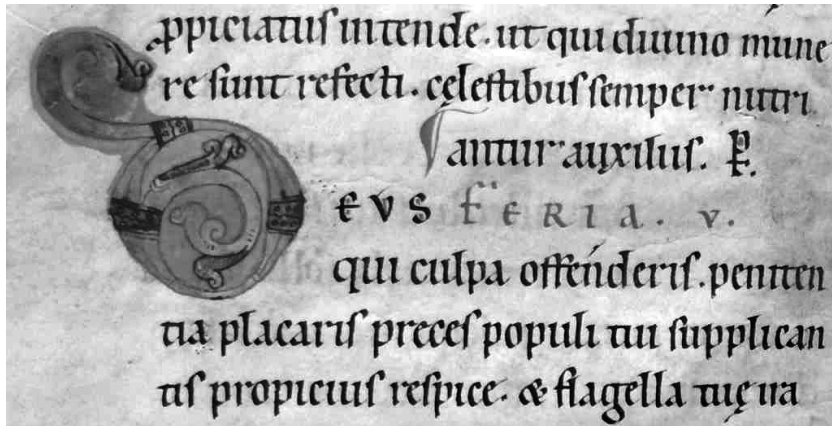 ꝓpiciatus intende. ut qui diuino mune
re sunt refecti. cęlestibus semper nutri
antur auxiliis. P.
DEVS FERIA. V.
qui culpa offenderis. peniten
tia placaris preces populi tui supplican
tis propicius respice. & flagella tuę ira